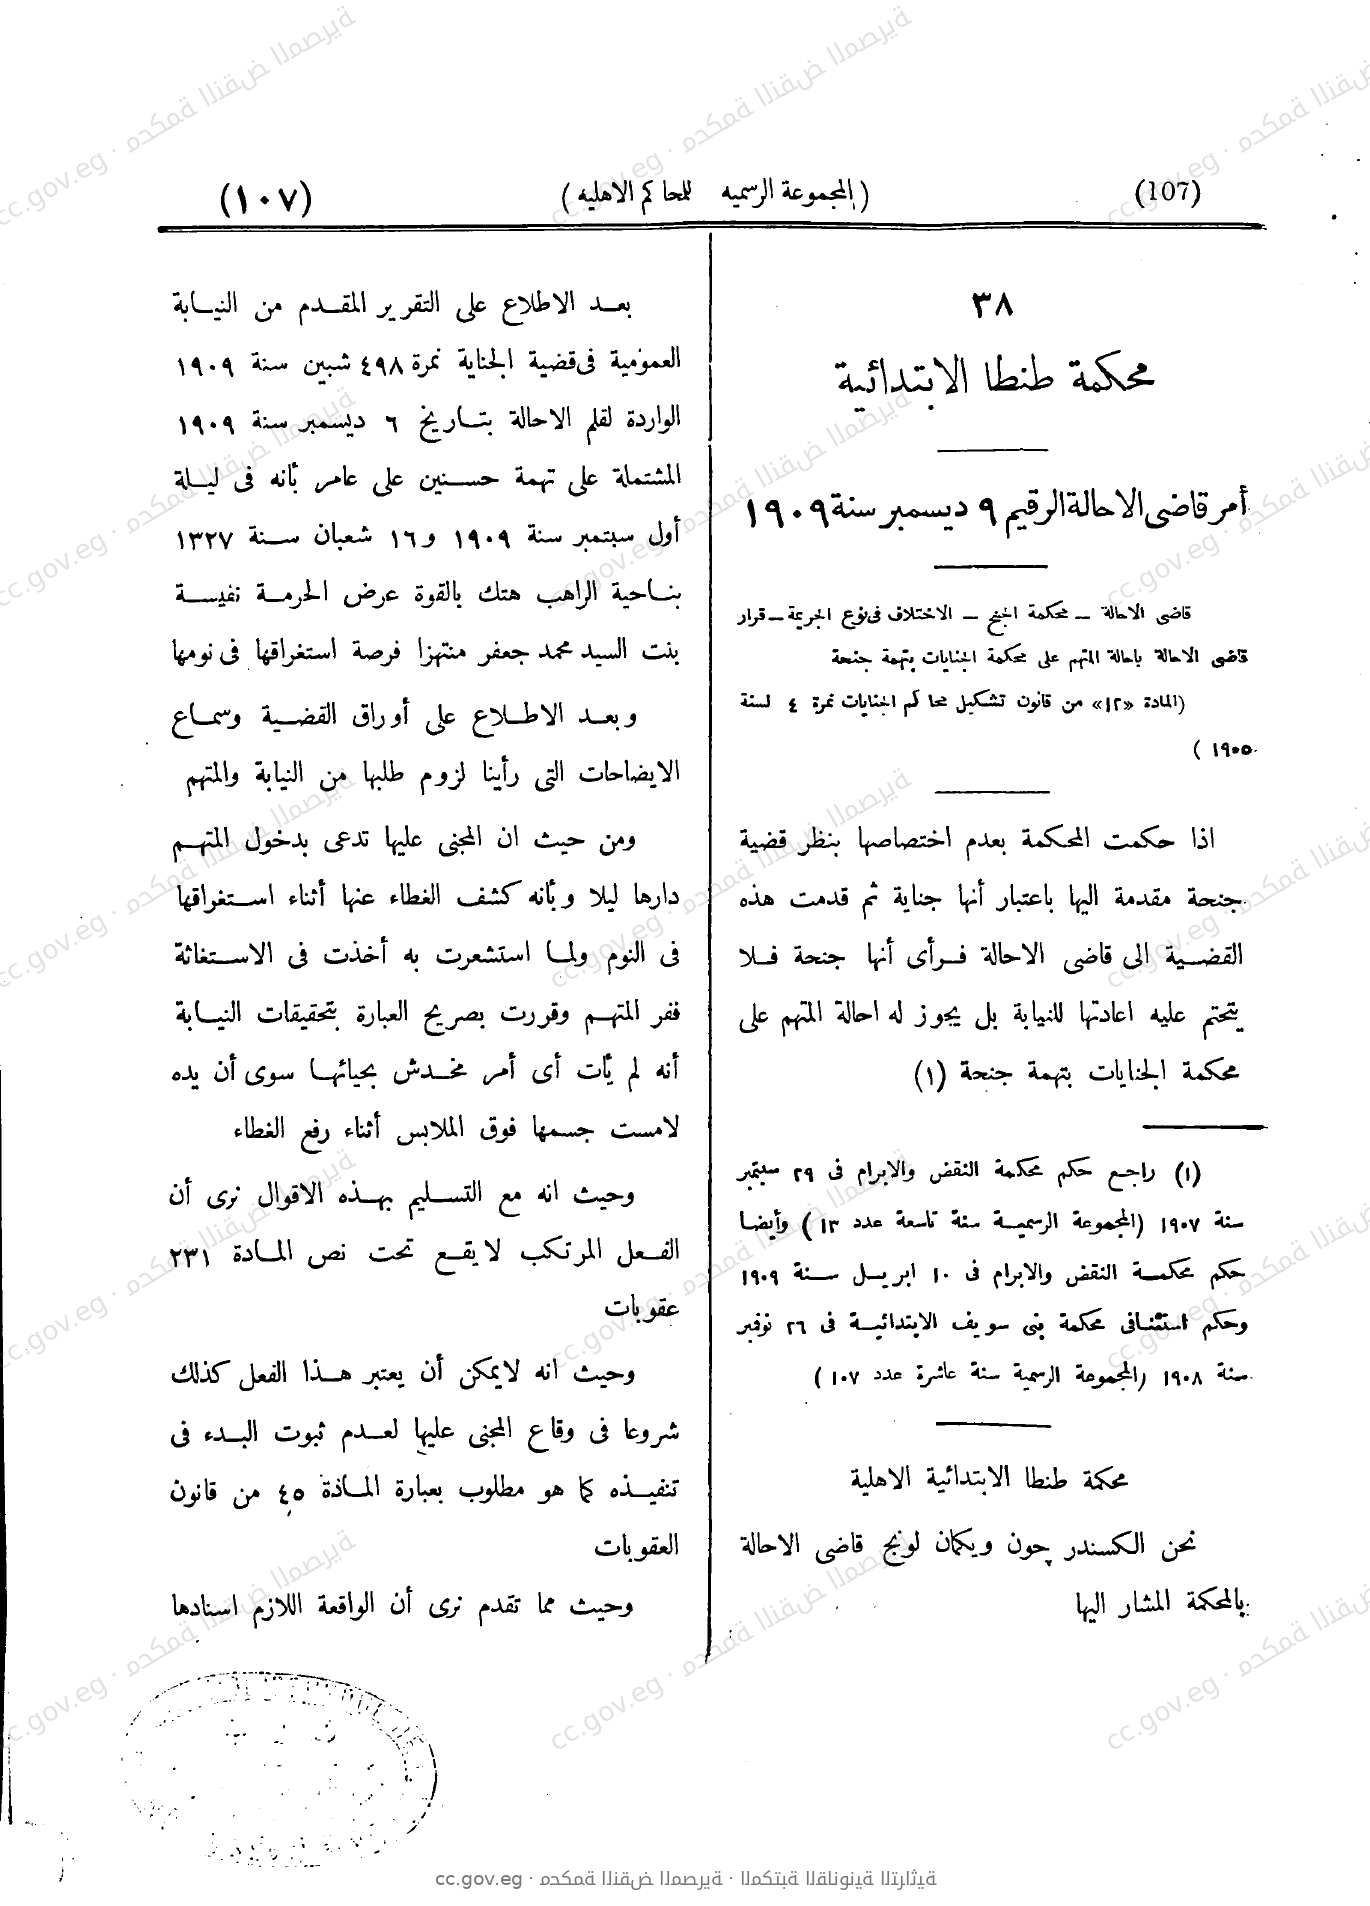 (107)
(المجموعة الرسميه للمحاكم الاهليه)
(١٠٧)
٣٨
محكمة طنطا الابتدائية
أمر قاضى الاحالة الرقيم ٩ ديسمبر سنة ١٩٠٩
قاضى الاحالة – محكمة الجنح – الاختلاف فى نوع الجريمة – قرار
قاضى الاحالة باحالة المتهم على محكمة الجنايات بتهمة جنحة
(المادة «١٢» من قانون تشكيل محاكم الجنايات نمرة ٤ لسنة
١٩٠٥)
اذا حكمت المحكمة بعدم اختصاصها بنظر قضية
جنحة مقدمة اليها باعتبار أنها جناية ثم قدمت هذه
القضية الى قاضى الاحالة فرأى أنها جنحة فلا
يتحتم عليه اعادتها للنيابة بل يجوز له احالة المتهم على
محكمة الجنايات بتهمة جنحة (١)
(١) راجع حكم محكمة النقض والابرام فى ٢٩ سبتمبر
سنة ١٩٠٧ (المجموعة الرسمية سنة تاسعة عدد ١٣) وأيضا
حكم محكمة النقض والابرام فى ١٠ ابريل سنة ١٩٠٩
وحكم استئنافى محكمة بنى سويف الابتدائية فى ٢٦ نوفمبر
سنة ١٩٠٨ (المجموعة الرسمية سنة عاشرة عدد ١٠٧)
محكمة طنطا الابتدائية الاهلية
نحن الكسندر چون ويكمان لونج قاضى الاحالة
بالمحكمة المشار اليها
بعد الاطلاع على التقرير المقدم من النيابة
العمومية فى قضية الجناية نمرة ٤٩٨ شبين سنة ١٩٠٩
الواردة لقلم الاحالة بتاريخ ٦ ديسمبر سنة ١٩٠٩
المشتملة على تهمة حسنين على عامر بأنه فى ليلة
أول سبتمبر سنة ١٩٠٩ و١٦ شعبان سنة ١٣٢٧
بناحية الراهب هتك بالقوة عرض الحرمة نفيسة
بنت السيد محمد جعفر منتهزا فرصة استغراقها فى نومها
وبعد الاطلاع على أوراق القضية وسماع
الايضاحات التى رأينا لزوم طلبها من النيابة والمتهم
ومن حيث ان المجنى عليها تدعى بدخول المتهم
دارها ليلا وبأنه كشف الغطاء عنها أثناء استغراقها
فى النوم ولما استشعرت به أخذت فى الاستغاثة
ففر المتهم وقررت بصريح العبارة بتحقيقات النيابة
أنه لم يأت أى أمر مخدش بحيائها سوى أن يده
لامست جسمها فوق الملابس أثناء رفع الغطاء
وحيث انه مع التسليم بهذه الاقوال نرى أن
الفعل المرتكب لا يقع تحت نص المادة ٢٣١
عقوبات
وحيث انه لا يمكن أن يعتبر هذا الفعل كذلك
شروعا فى وقاع المجنى عليها لعدم ثبوت البدء فى
تنفيذه كما هو مطلوب بعبارة المادة ٤٥ من قانون
العقوبات
وحيث مما تقدم نرى أن الواقعة اللازم اسنادها
cc.gov.eg · محكمة النقض المصرية · المكتبة القانونية التراثية